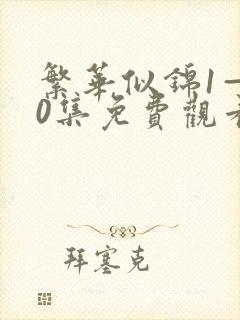 繁華似錦1一
0集免費觀看
拜塞克